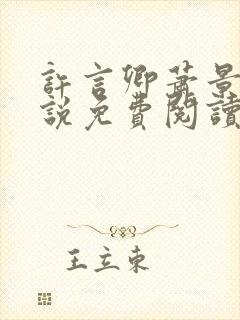 許言卿蕭景
說免費閱讀
王立東